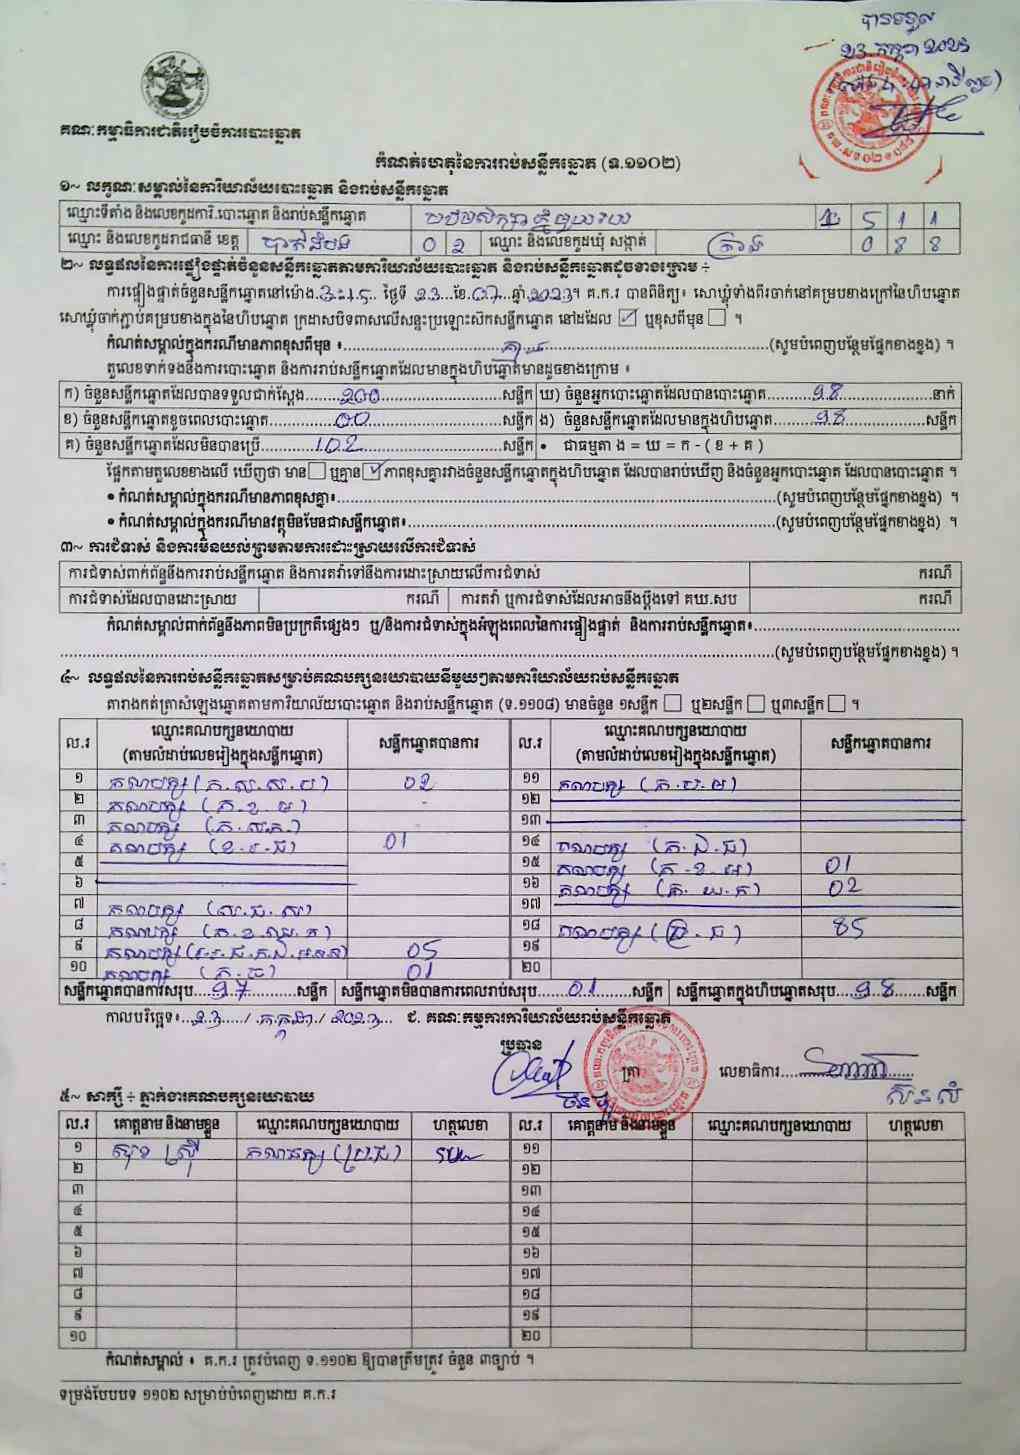 បានទទួល
23 កក្កដា 2023
គណៈកម្មាធិការជាតិរៀបចំការបោះឆ្នោត
កំណត់ហេតុនៃការរាប់សន្លឹកឆ្នោត (ទ.១១០២)
១~ លក្ខណៈសម្គាល់នៃការិយាល័យបោះឆ្នោត និងរាប់សន្លឹកឆ្នោត
ឈ្មោះទីតាំង និងលេខកូដការិ.បោះឆ្នោត និងរាប់សន្លឹកឆ្នោត 5 1 1
ឈ្មោះ និងលេខកូដរាជធានី ខេត្ត បាត់ដំបង 0 2 ឈ្មោះ និងលេខកូដឃុំ សង្កាត់ 0 8 8
២~ លទ្ធផលនៃការផ្ទៀងផ្ទាត់ចំនួនសន្លឹកឆ្នោតតាមការិយាល័យបោះឆ្នោត និងរាប់សន្លឹកឆ្នោតដូចខាងក្រោម ÷
ការផ្ទៀងផ្ទាត់ចំនួនសន្លឹកឆ្នោតនៅម៉ោង 3:15 ថ្ងៃទី 23 ខែ 07 ឆ្នាំ 2023។ គ.ក.រ បានពិនិត្យ៖ សោឃ្លុំទាំងពីរចាក់នៅគម្របខាងក្រៅនៃហិបឆ្នោត
សោឃ្លុំចាក់ភ្ជាប់គម្របខាងក្នុងនៃហិបឆ្នោត ក្រដាសបិទពាសលើសន្ទះប្រឡោះស៊កសន្លឹកឆ្នោត នៅដដែល ☑ ឬខុសពីមុន ☐ ។
កំណត់សម្គាល់ក្នុងករណីមានភាពខុសពីមុន ៖ គ្មាន (សូមបំពេញបន្ថែមផ្នែកខាងខ្នង) ។
តួលេខទាក់ទងនឹងការបោះឆ្នោត និងការរាប់សន្លឹកឆ្នោតដែលមានក្នុងហិបឆ្នោតមានដូចខាងក្រោម ៖
ក) ចំនួនសន្លឹកឆ្នោតដែលបានទទួលជាក់ស្តែង 200 សន្លឹក ឃ) ចំនួនអ្នកបោះឆ្នោតដែលបានបោះឆ្នោត 98 នាក់
ខ) ចំនួនសន្លឹកឆ្នោតខូចពេលបោះឆ្នោត 00 សន្លឹក ង) ចំនួនសន្លឹកឆ្នោតដែលមានក្នុងហិបឆ្នោត 98 សន្លឹក
គ) ចំនួនសន្លឹកឆ្នោតដែលមិនបានប្រើ 102 សន្លឹក • ជាធម្មតា ង = ឃ = ក - ( ខ + គ )
ផ្អែកតាមតួលេខខាងលើ ឃើញថា មាន ☐ ឬគ្មាន ☑ ភាពខុសគ្នារវាងចំនួនសន្លឹកឆ្នោតក្នុងហិបឆ្នោត ដែលបានរាប់ឃើញ និងចំនួនអ្នកបោះឆ្នោត ដែលបានបោះឆ្នោត ។
• កំណត់សម្គាល់ក្នុងករណីមានភាពខុសគ្នា៖ (សូមបំពេញបន្ថែមផ្នែកខាងខ្នង) ។
• កំណត់សម្គាល់ក្នុងករណីមានវត្ថុមិនមែនជាសន្លឹកឆ្នោត៖ (សូមបំពេញបន្ថែមផ្នែកខាងខ្នង) ។
៣~ ការជំទាស់ និងការមិនយល់ព្រមតាមការដោះស្រាយលើការជំទាស់
ការជំទាស់ពាក់ព័ន្ធនឹងការរាប់សន្លឹកឆ្នោត និងការតវ៉ាទៅនឹងការដោះស្រាយលើការជំទាស់ ករណី
ការជំទាស់ដែលបានដោះស្រាយ ករណី ការតវ៉ា ឬការជំទាស់ដែលអាចនឹងប្តឹងទៅ គឃ.សប ករណី
កំណត់សម្គាល់ពាក់ព័ន្ធនឹងភាពមិនប្រក្រតីផ្សេងៗ ឬ/និងការជំទាស់ក្នុងអំឡុងពេលនៃការផ្ទៀងផ្ទាត់ និងការរាប់សន្លឹកឆ្នោត៖
(សូមបំពេញបន្ថែមផ្នែកខាងខ្នង) ។
៤~ លទ្ធផលនៃការរាប់សន្លឹកឆ្នោតសម្រាប់គណបក្សនយោបាយនីមួយៗតាមការិយាល័យរាប់សន្លឹកឆ្នោត
តារាងកត់ត្រាសំឡេងឆ្នោតតាមការិយាល័យបោះឆ្នោត និងរាប់សន្លឹកឆ្នោត (ទ.១១០៨) មានចំនួន ១សន្លឹក ☐ ឬ២សន្លឹក ☐ ឬ៣សន្លឹក ☐ ។
ល.រ ឈ្មោះគណបក្សនយោបាយ (តាមលំដាប់លេខរៀងក្នុងសន្លឹកឆ្នោត) សន្លឹកឆ្នោតបានការ ល.រ ឈ្មោះគណបក្សនយោបាយ (តាមលំដាប់លេខរៀងក្នុងសន្លឹកឆ្នោត) សន្លឹកឆ្នោតបានការ
១ គណបក្ស 02 ១១ គណបក្ស
២ គណបក្ស - ១២
៣ គណបក្ស ១៣
៤ គណបក្ស 01 ១៤ គណបក្ស
៥ ១៥ គណបក្ស 01
៦ ១៦ គណបក្ស 02
៧ គណបក្ស ១៧
៨ គណបក្ស ១៨ គណបក្ស 85
៩ គណបក្ស 05 ១៩
១០ គណបក្ស 01 ២០
សន្លឹកឆ្នោតបានការសរុប 97 សន្លឹក សន្លឹកឆ្នោតមិនបានការពេលរាប់សរុប 01 សន្លឹក សន្លឹកឆ្នោតក្នុងហិបឆ្នោតសរុប 98 សន្លឹក
កាលបរិច្ឆេទ៖ 23 / កក្កដា / 2023 ជ. គណៈកម្មការការិយាល័យរាប់សន្លឹកឆ្នោត
ប្រធាន
ត្រា លេខាធិការ
៥~ សាក្សី ÷ ភ្នាក់ងារគណបក្សនយោបាយ
ល.រ គោត្តនាម និងនាមខ្លួន ឈ្មោះគណបក្សនយោបាយ ហត្ថលេខា ល.រ គោត្តនាម និងនាមខ្លួន ឈ្មោះគណបក្សនយោបាយ ហត្ថលេខា
១ សុខ ស្រី គណបក្ស ១១
២ ១២
៣ ១៣
៤ ១៤
៥ ១៥
៦ ១៦
៧ ១៧
៨ ១៨
៩ ១៩
១០ ២០
កំណត់សម្គាល់ ៖ គ.ក.រ ត្រូវបំពេញ ទ.១១០២ ឱ្យបានត្រឹមត្រូវ ចំនួន ៣ច្បាប់ ។
ទម្រង់បែបបទ ១១០២ សម្រាប់បំពេញដោយ គ.ក.រ